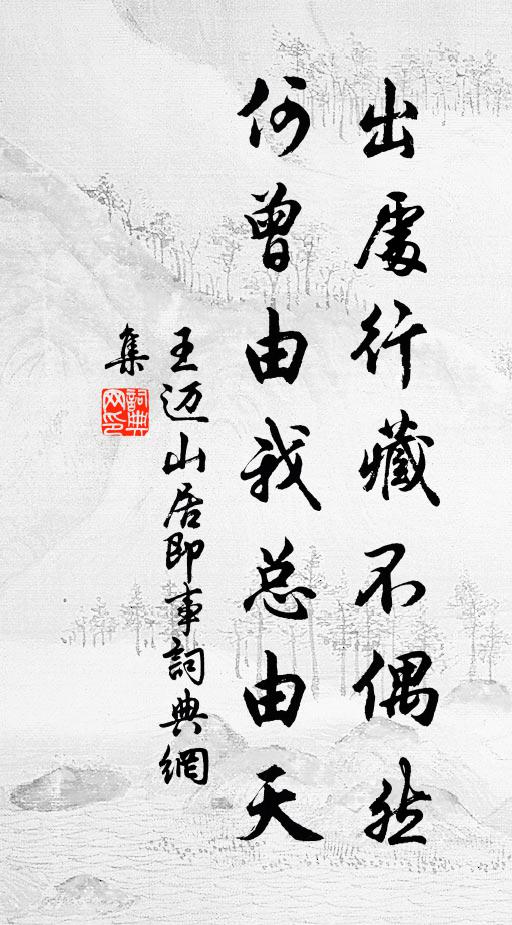 出處行藏不偶然
何曾由我总由天
王迈山居即事詞典網
集
詞典
网印